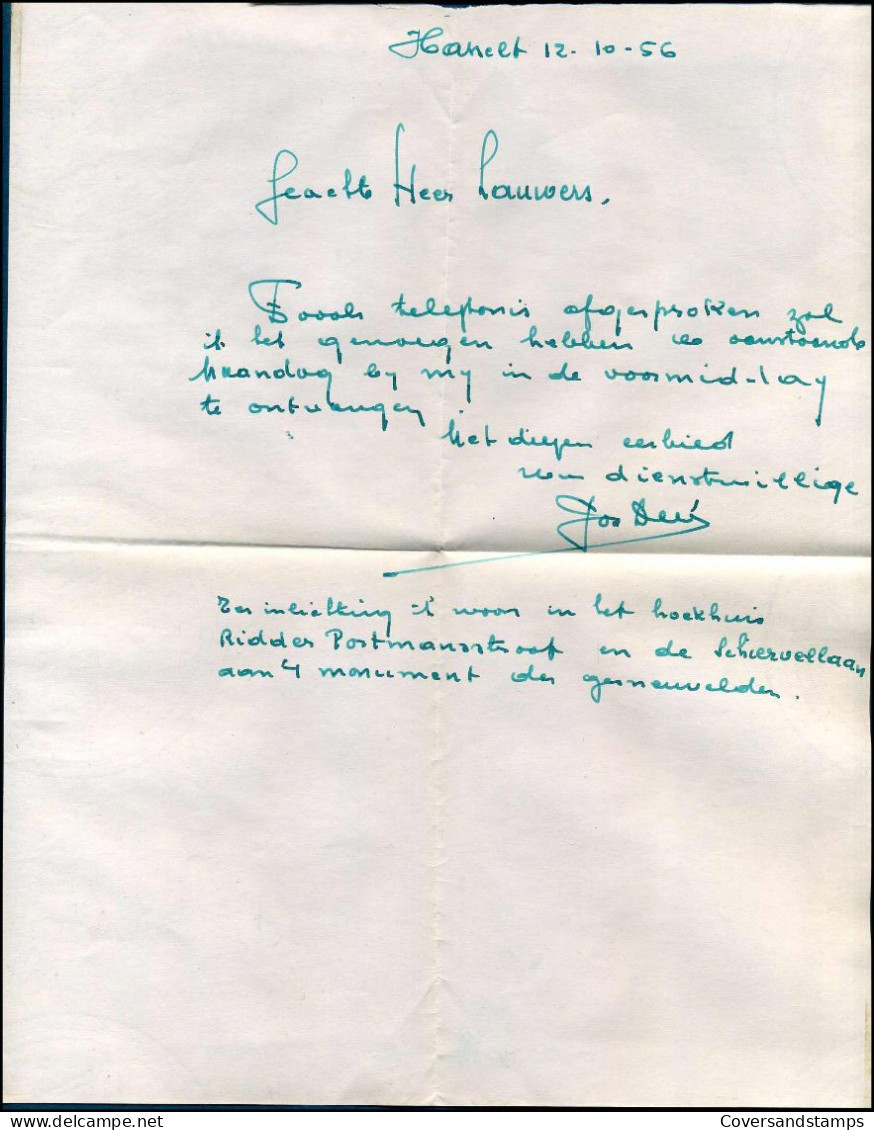 Hasselt 12-10-56
Geachte Heer Lauwers.
Zooals telefonis afgesproken zal
ik het genoegen hebben U aanstaande
Maandag by my in de voormid-dag
te ontvangen
Met diepen eerbied
Uw dienstwillige
Jos
Ter inlichting ik woon in het hoekhuis
Ridder Portmansstraat en de Schiervellaan
aan 't monument der gesneuvelden.
Coversandstamps